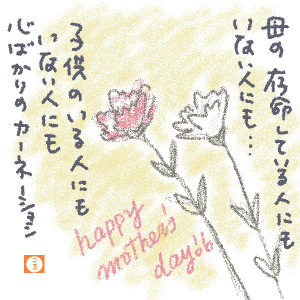 母の存命している人にも
いない人にも…
子供のいる人にも
いない人にも
心ばかりのカーネーション
happy
mother's
day!!